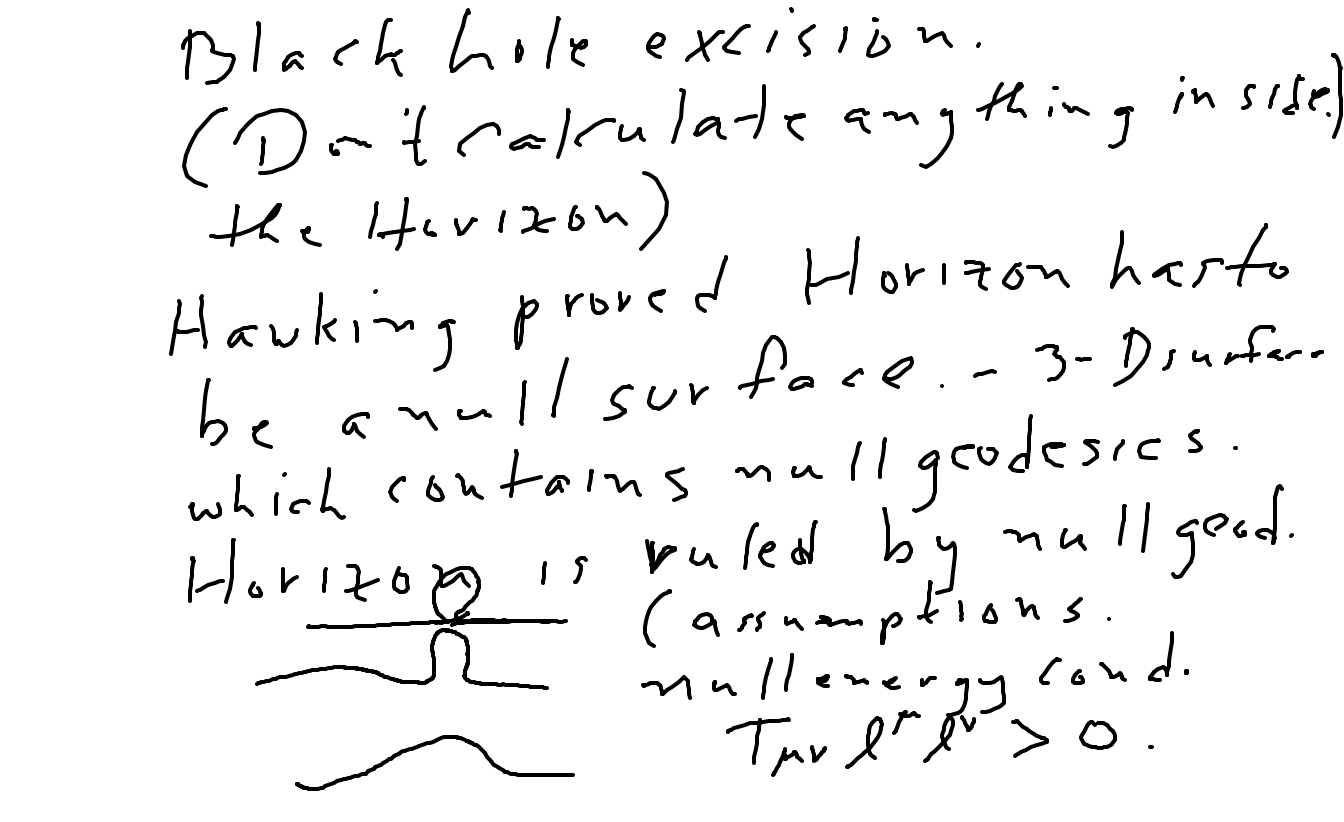 Black hole excision.
(Don't calculate anything inside)
the Horizon)
Hawking proved Horizon has to
be a null surface. - 3-D surface
which contains null geodesics.
Horizon is ruled by null geod.
(assumptions.
null energy cond.
Tμν l^μ l^ν > 0.